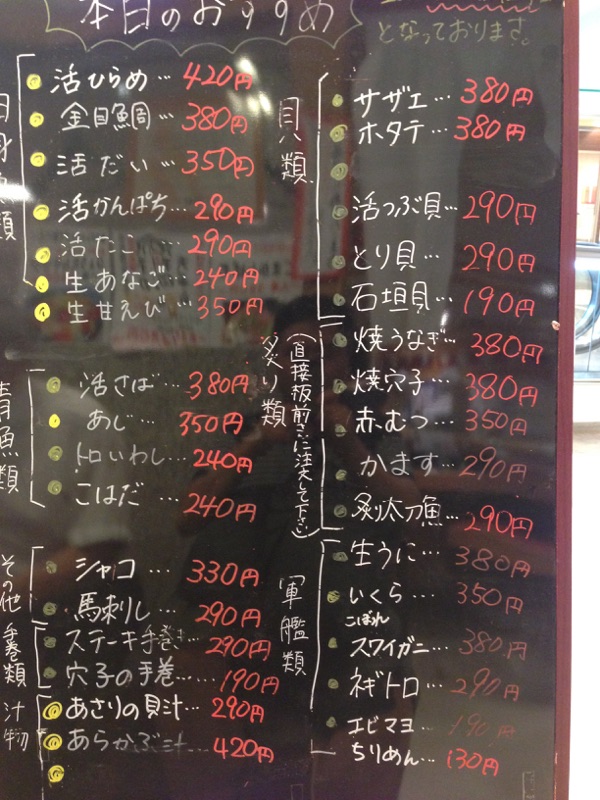 本日のおすすめ
となっております。
白身魚類
活ひらめ…420円
金目鯛…380円
活だい…350円
活かんぱち…290円
活たこ…290円
生あなご…240円
生甘えび…350円
青魚類
活さば…380円
あじ…350円
トロいわし…240円
こはだ…240円
その他
シャコ…330円
馬刺し…290円
手巻類
ステーキ手巻き…290円
穴子の手巻…190円
汁物
あさりの貝汁…290円
あらかぶ汁…420円
貝類
サザエ…380円
ホタテ…380円
活つぶ貝…290円
とり貝…290円
石垣貝…190円
炙り類
(直接板前さんに注文して下さい)
焼うなぎ…380円
焼穴子…380円
赤むつ…350円
かます…290円
炙太刀魚…290円
軍艦類
生うに…380円
いくら…350円
こぼれ
スワイガニ…380円
ネギトロ…290円
エビマヨ…190円
ちりめん…130円